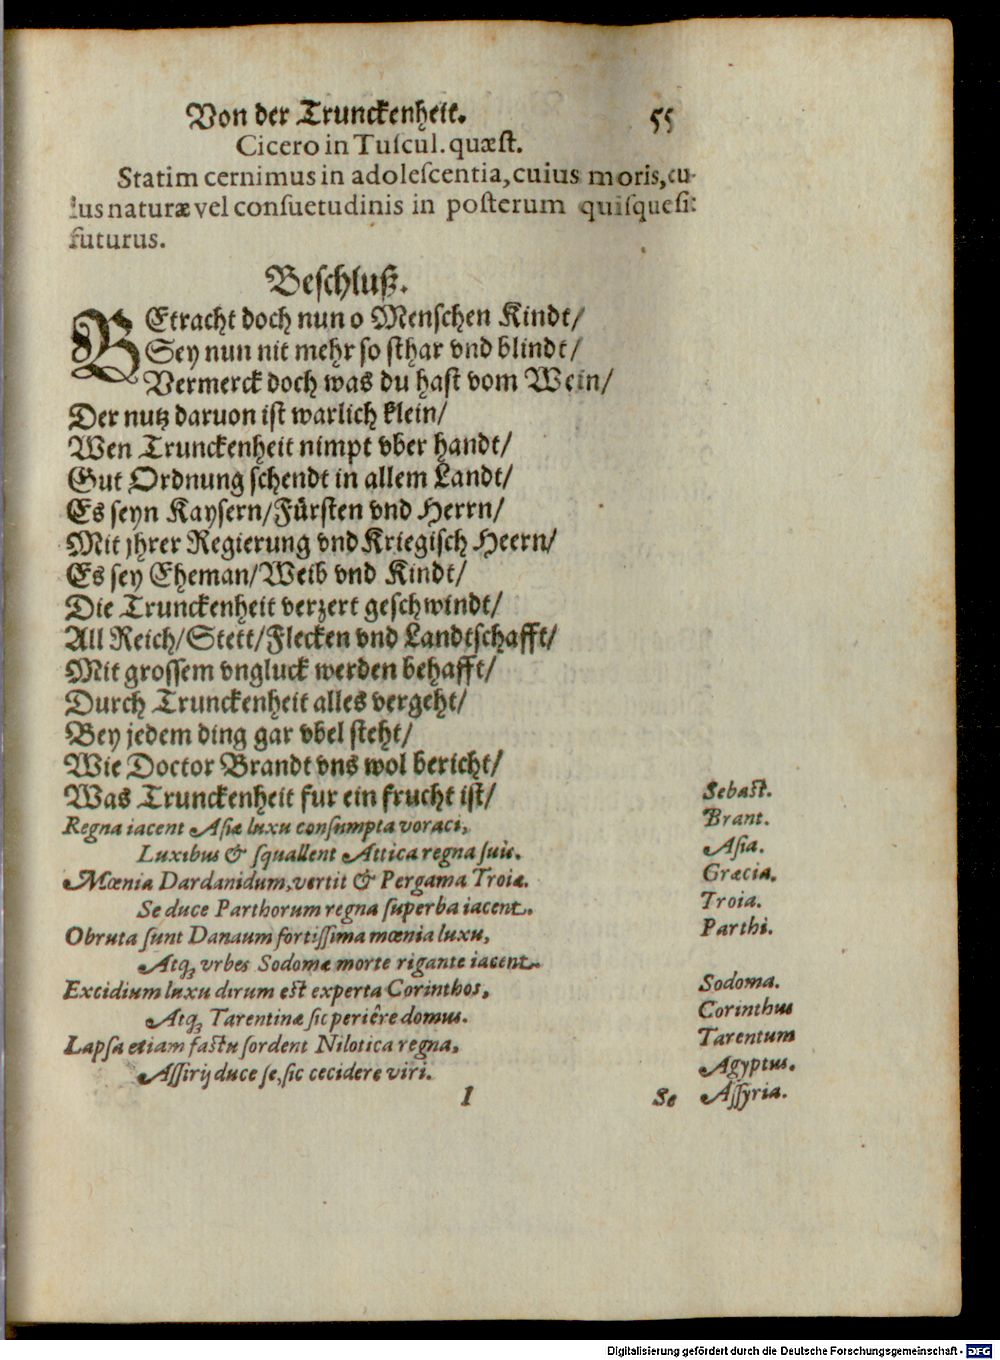 Von der Trunckenheit. 55
Cicero in Tuscul. quæst.
Statim cernimus in adolescentia, cuius moris, cu-
ius naturæ vel consuetudinis in posterum quisque sit
futurus.
Beschluß.
BEtracht doch nun o Menschen Kindt/
Sey nun nit mehr so sthar vnd blindt/
Vermerck doch was du hast vom Wein/
Der nutz daruon ist warlich klein/
Wen Trunckenheit nimpt vber handt/
Gut Ordnung schendt in allem Landt/
Es seyn Kaysern/Fürsten vnd Herrn/
Mit jhrer Regierung vnd Kriegisch Heern/
Es sey Eheman/Weib vnd Kindt/
Die Trunckenheit verzert geschwindt/
All Reich/Stett/Flecken vnd Landtschafft/
Mit grossem vngluck werden behafft/
Durch Trunckenheit alles vergeht/
Bey jedem ding gar vbel steht/
Wie Doctor Brandt vns wol bericht/
Was Trunckenheit fur ein frucht ist/
Sebast.
Brant.
Regna iacent Asiæ luxu consumpta voraci,
Luxibus & squallent Attica regna suis.
Asia.
Mœnia Dardanidum, vertit & Pergama Troiæ.
Græcia.
Se duce Parthorum regna superba iacent.
Troia.
Obruta sunt Danaum fortissima mœnia luxu,
Parthi.
Atq; vrbes Sodomæ morte rigante iacent.
Excidium luxu dirum est experta Corinthos,
Sodoma.
Atq; Tarentinæ sic periêre domus.
Corinthus
Lapsa etiam fastu sordent Nilotica regna,
Tarentum
Assirij duce se, sic cecidere viri.
Ægyptus.
l Se
Assyria.
Digitalisierung gefördert durch die Deutsche Forschungsgemeinschaft - DFG